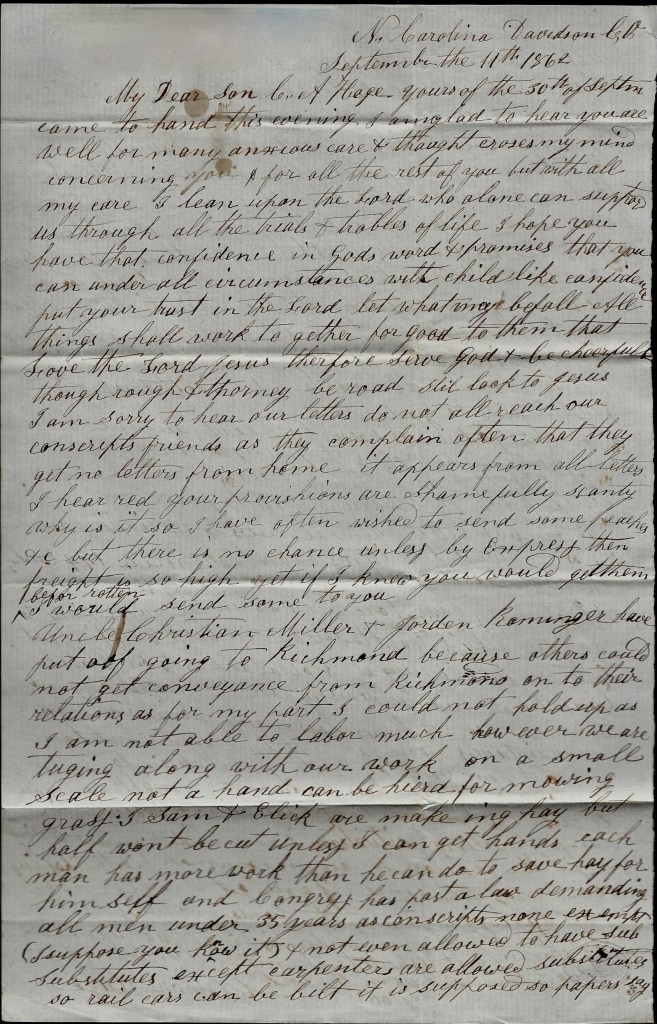 N. Carolina Davidson Co
September the 11th 1862
My Dear Son C. A Hege yours of the 30th of Septm
came to hand this evening I am glad to hear you are
well for many anxious care & thought croses my mind
concerning you & for all the rest of you but with all
my care I lean upon the Lord who alone can support
us through all the trials & trobles of life I hope you
have that confidence in Gods word & promises that you
can under all circumstances with child like confidence
put your trust in the Lord let what may befall All
things shall work to gether for good to them that
Love the Lord Jesus therfore serve God & be cheerful
though rough & thorney be road stil look to Jesus
I am sorry to hear our letters do not all reach our
conscripts friends as they complain often that they
get no letters from home it appears from all letters
I hear red your provishions are shamefully scanty
why is it so I have often wished to send some peaches
&c but there is no chance unless by Express then
freight is so high yet if I knew you would get them
befor rotten
I would send some to you
Uncle Christian Miller & Jorden Rominger have
put off going to Richmond because others could
not get conveyance from Richmond on to their
relations as for my part I could not hold up as
I am not able to labor much how ever we are
tuging along with our work on a small
scale not a hand can be hierd for mowing
grass. I Sam & Elick are make ing hay but
half wont be cut unless I can get hands each
man has more work than he can do to save hay for
him self and Congress has past a law demanding
all men under 35 years as conscripts none exempt
(I suppose you know it) & not even allowed to have sub
substitutes except carpenters are allowed substitutes
so rail cars can be bilt it is supposed so papers say